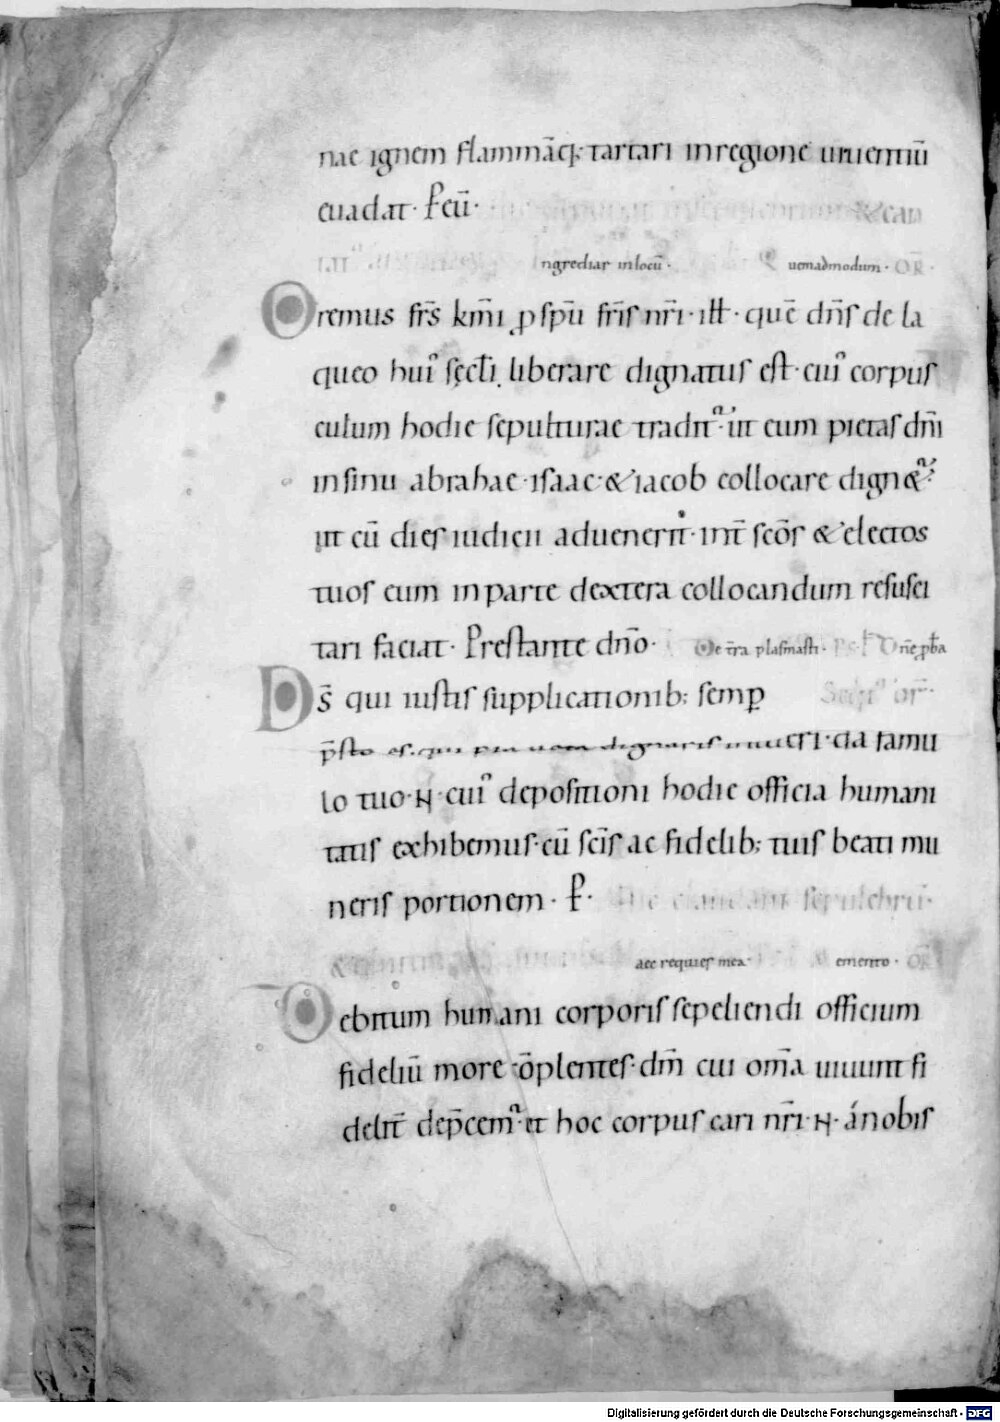 nae ignem flammāq; tartari in regione uiuentiū
euadat· P̄ cū·
& can
ngrediar in locū· Q uemadmodum· OR̄·
Oremus fr̄s km̄i p spū fr̄is nr̄i· ill̄· quē dn̄s de la
queo hui' sęcl̄i liberare dignatus est· cui' corpus
culum hodie sepulturae tradit᷑· ut eum pietas dn̄i
in sinu abrahae· isaac· & iacob collocare dign&᷑·
ut cū dies iudicii aduenerit· int̄ scōs & electos
tuos eum in parte dextera collocandum resusci
tari faciat· Prestante dn̄o· De t̄ra plasmasti· Ps· Dn̄e pba
Ds̄ qui iustis supplicationib; semp
p̄sto es· qui pia uota dignaris intueri· da famu
lo tuo· N· cui' depositioni hodie officia humani
tatis exhibemus· cū scīs ac fidelib; tuis beati mu
neris portionem· P̄· sepulchrū·
&
aec requies mea· M emento· OR̄
Debitum humani corporis sepeliendi officium
fideliū more cōplentes· dm̄ cui om̄a uiuunt fi
delit̄ dep̄cem᷑· ut hoc corpus cari nr̄i· N· á nobis
Digitalisierung gefördert durch die Deutsche Forschungsgemeinschaft - DFG